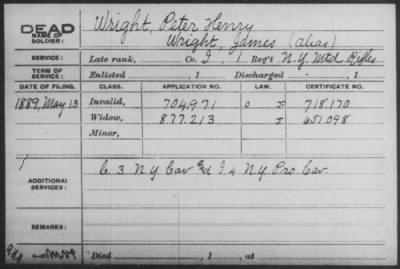 DEAD
NAME OF SOLDIER:
Wright, Peter Henry
Wright, James (alias)
SERVICE: Late rank, Co. I, 1 Reg't N.Y. Mtd Rifles
TERM OF SERVICE: Enlisted , 1 Discharged , 1
DATE OF FILING. CLASS. APPLICATION NO. LAW. CERTIFICATE NO.
1889, May 13 Invalid, 704.971 J 718.170
Widow, 877.213 J 651.098
Minor,
ADDITIONAL SERVICES: C. 3 N.Y. Cav and I 4 N.Y. Pro Cav.
REMARKS:
Died , 1 , at